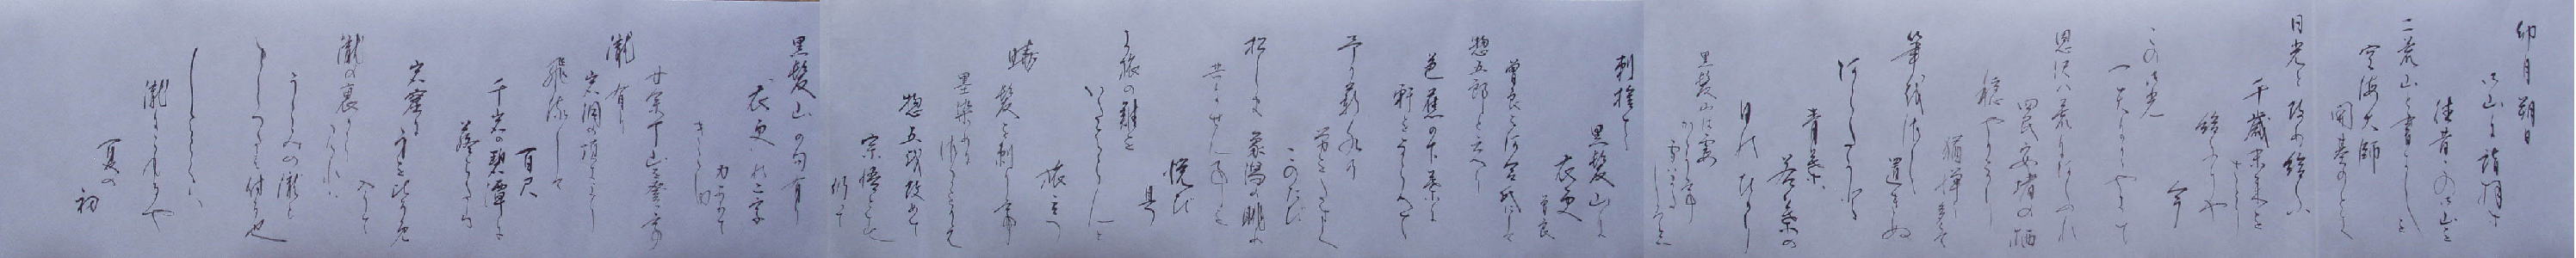 卯月朔日
御山に詣拝す
往昔この御山を
二荒山と書しを
空海大師
開基のとき
日光と改め給ふ
千歳未来を
さとり
給ふにや
今
この御光
一天にかゝやきて
恩沢八荒にあふれ
四民安堵の栖
穏やかなり
猶憚多くて
筆を
置ぬ
あらたうと
青葉
若葉の
日のひかり
黒髪山は霞
かゝりて
雪いまだ
しろし
剃捨て
黒髪山に
衣更
曽良
曽良は河合氏にして
惣五郎と云へり
芭蕉の下葉に
軒をならべて
予が薪水の
労をたすく
このたび
松しま象潟の眺
共にせん事を
悦び
且
は旅の難を
いたはらんと
旅立つ
暁
髪を剃て
墨染に
さまをかえて
惣五を改て
宗悟とす
仍て
黒髪山の句有
衣更の二字
力ありて
きこゆ
廿余丁山を登つて
瀧有
岩洞の頂より
飛流して
百尺
千岩の碧潭に
落たり
岩窟に
身をひそめ
入て
瀧の裏より
みれば
うらみの瀧と
申つたえ侍る也
しばらくは
瀧にこもるや
夏の
初